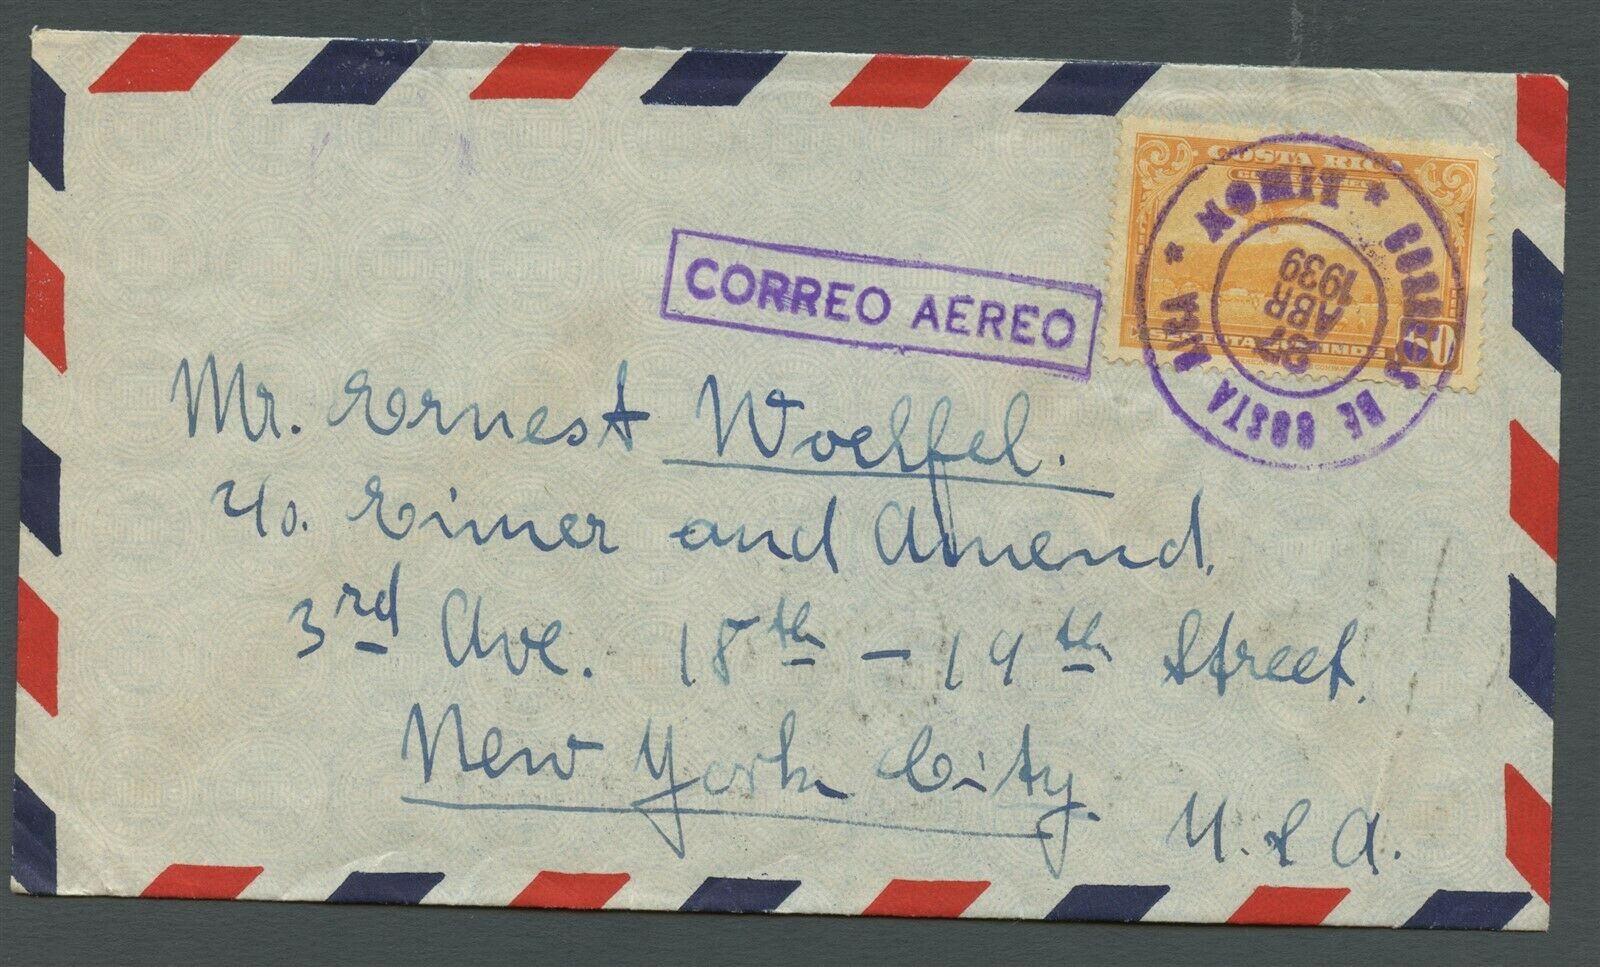 COSTA RICA
SESENTA CENTIMOS 60
CORREOS DE COSTA RICA * LIMON *
27
ABR
1939
CORREO AEREO
Mr. Ernest Woelffel.
c/o. Eimer and Amend.
3rd Ave. 18th – 19th Street.
New York City.
U.S.A.